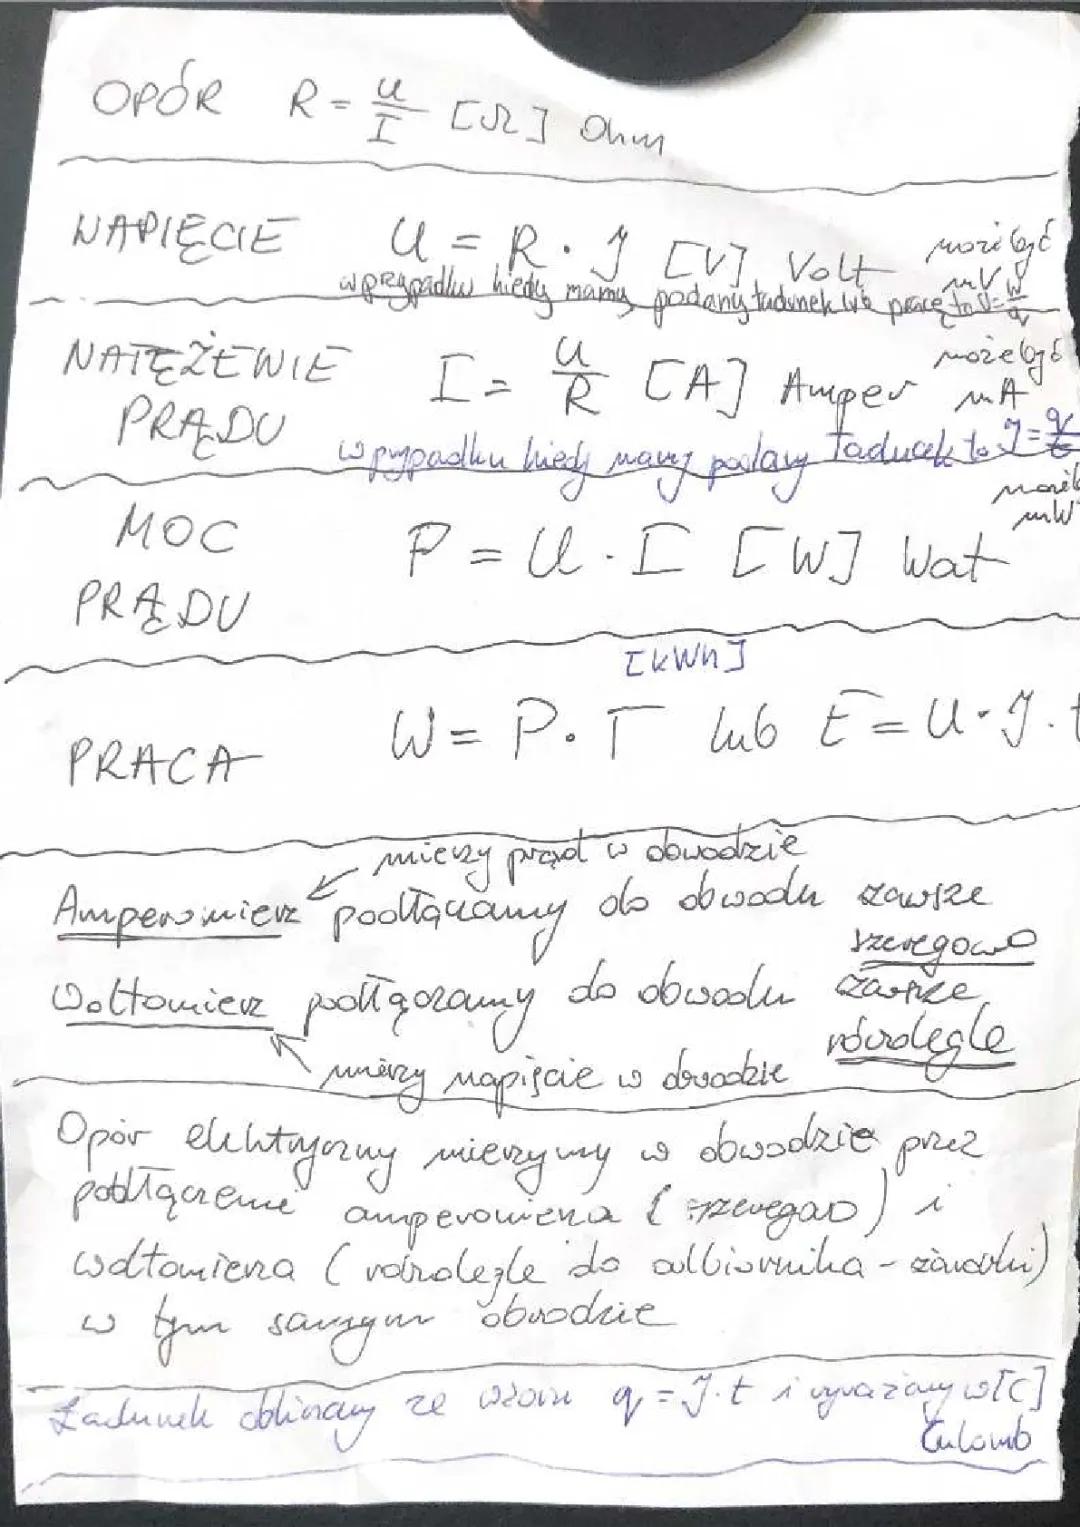 OPÓR R = U/I [Ω] Ohm
NAPIĘCIE U = R · I [V] Volt może być mV
w przypadku kiedy mamy podany ładunek lub pracę to U = W/q
NATĘŻENIE PRĄDU I = U/R [A] Amper może być mA
w przypadku kiedy mamy podany ładunek to I = q/t
MOC PRĄDU P = U · I [W] Wat mW
[kWh]
PRACA W = P · T lub E = U · I · t
mierzy prąd w obwodzie
Amperomierz podłączamy do obwodu zawsze
szeregowo
Woltomierz podłączamy do obwodu zawsze
równolegle
mierzy napięcie w obwodzie
Opór elektryczny mierzymy w obwodzie przez
podłączenie amperomierza (szeregowo) i
woltomierza (równolegle do odbiornika - żarówki)
w tym samym obwodzie
Ładunek obliczamy ze wzoru q = I · t i wyrażamy w [C]
Culomb